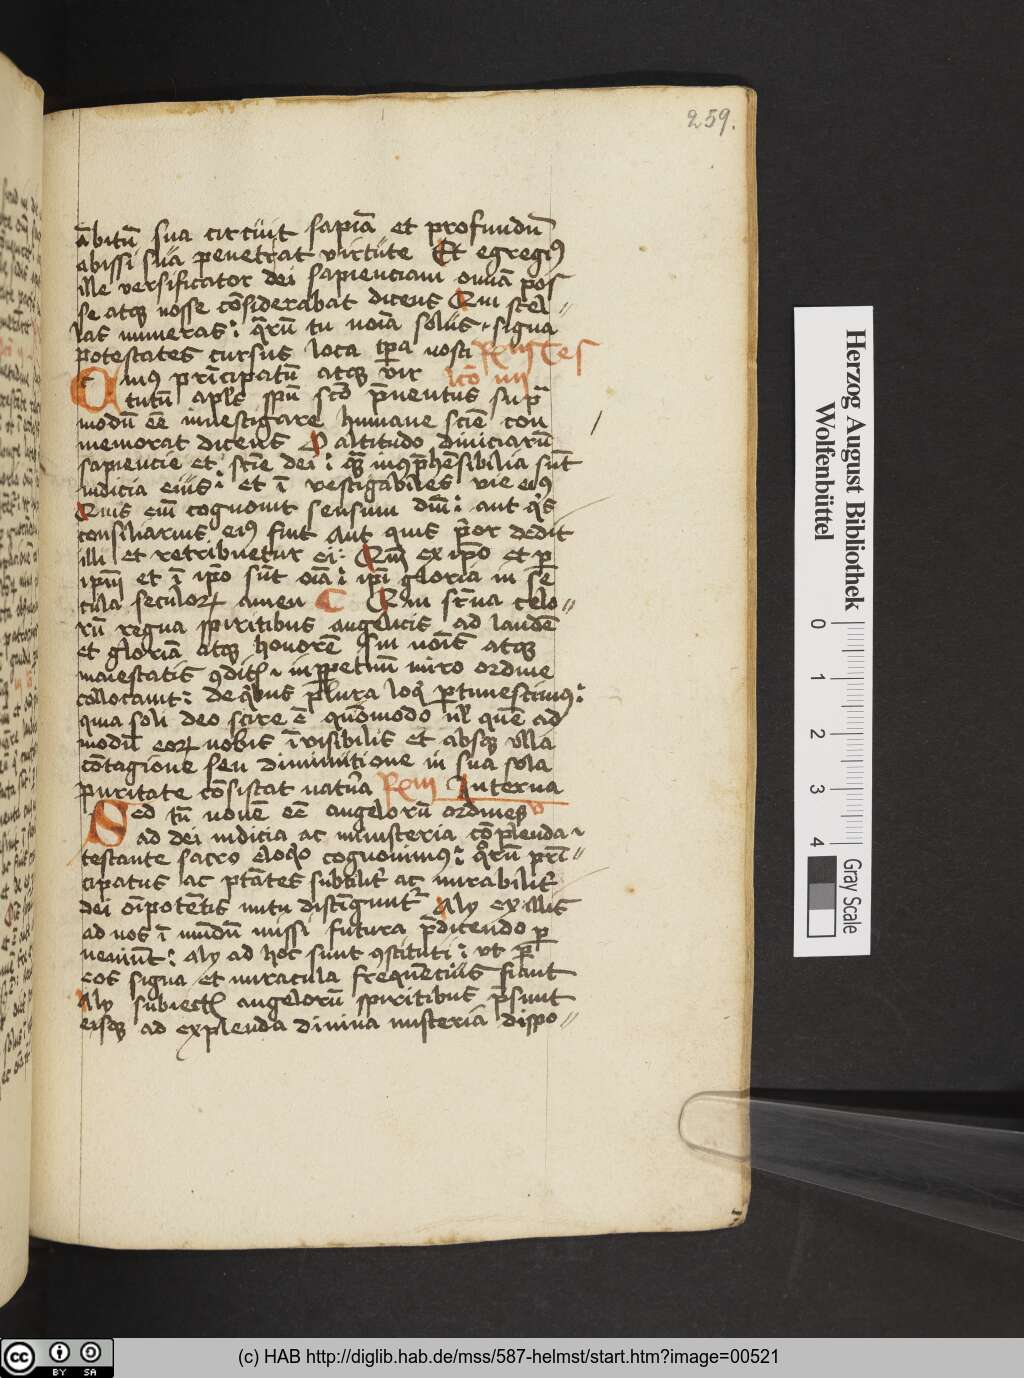 259.
ābitū sua circuit sapiā et profundū
abissi sua penetrat virtute Et egregi9
ille versificator dei sapienciam omnā pos
se atq3 nosse cōsiderabat dicens Qui stel//
las numeras: q̄rū tu noīa solus · signa
potestates cursus loca tp̄a nosti
In9 prīcipatū atq3 vir
tutū apl's spū scō p̄uentus sup̄
modū eē inuestigare humane sciē con
memorat dicens O altitudo diuiciarū
sapiencie et sciē dei: q̄3 inqp̄hēsibilia sūt
iudicia eius: et ī vestigabiles vie ei9
Quis em̄ cognouit sensum dn̄i: aut q's
consiliarius ei9 fuit Aut quis p'or dedit
illi et retribuetur ei: Qm̄ ex ip̄o et p
ip̄m et ī ip̄o sūt oīa: ip̄i gloria in sē
cula seculoꝝ amen Qui st'ua celo//
rū regna spiritibus angelicis ad laudē
et gloriā atq3 honorē sui noīs atq3
maiestatis 9dit · inpetuū miro ordine
collocauit: de q'bus plura loq' ptimescim9:
quia soli deo scire ē quōmodo ul' quē ad
modū eoꝝ nobis īvisibilis et absq3 vlla
cōtagione seu diminutione in sua sola
puritate cōsistat nat'a Interna
Sed tn̄ nouē eē angelorū ordines
ad dei iudicia ac ministeria cōplenda ·
testante sacro eloq'o cognouim9: q̄rū prī//
cipatus ac ptātes subtilit' ac mirabilit'
dei oīpotētis nutu distīguunt' Aly ex illis
ad nos ī mūdū missi futura p̄dicendo p
ueniūt: aly ad hoc sunt 9stituti: vt p
eos signa et miracula frequēcius fiant
Aly subiectis angelorū spiritibus p̄sunt
eisq3 ad explenda diuina misteria dispo//
Herzog August Bibliothek
Wolfenbüttel
0 1 2 3 4
Gray Scale
(c) HAB http://diglib.hab.de/mss/587-helmst/start.htm?image=00521
cc BY SA